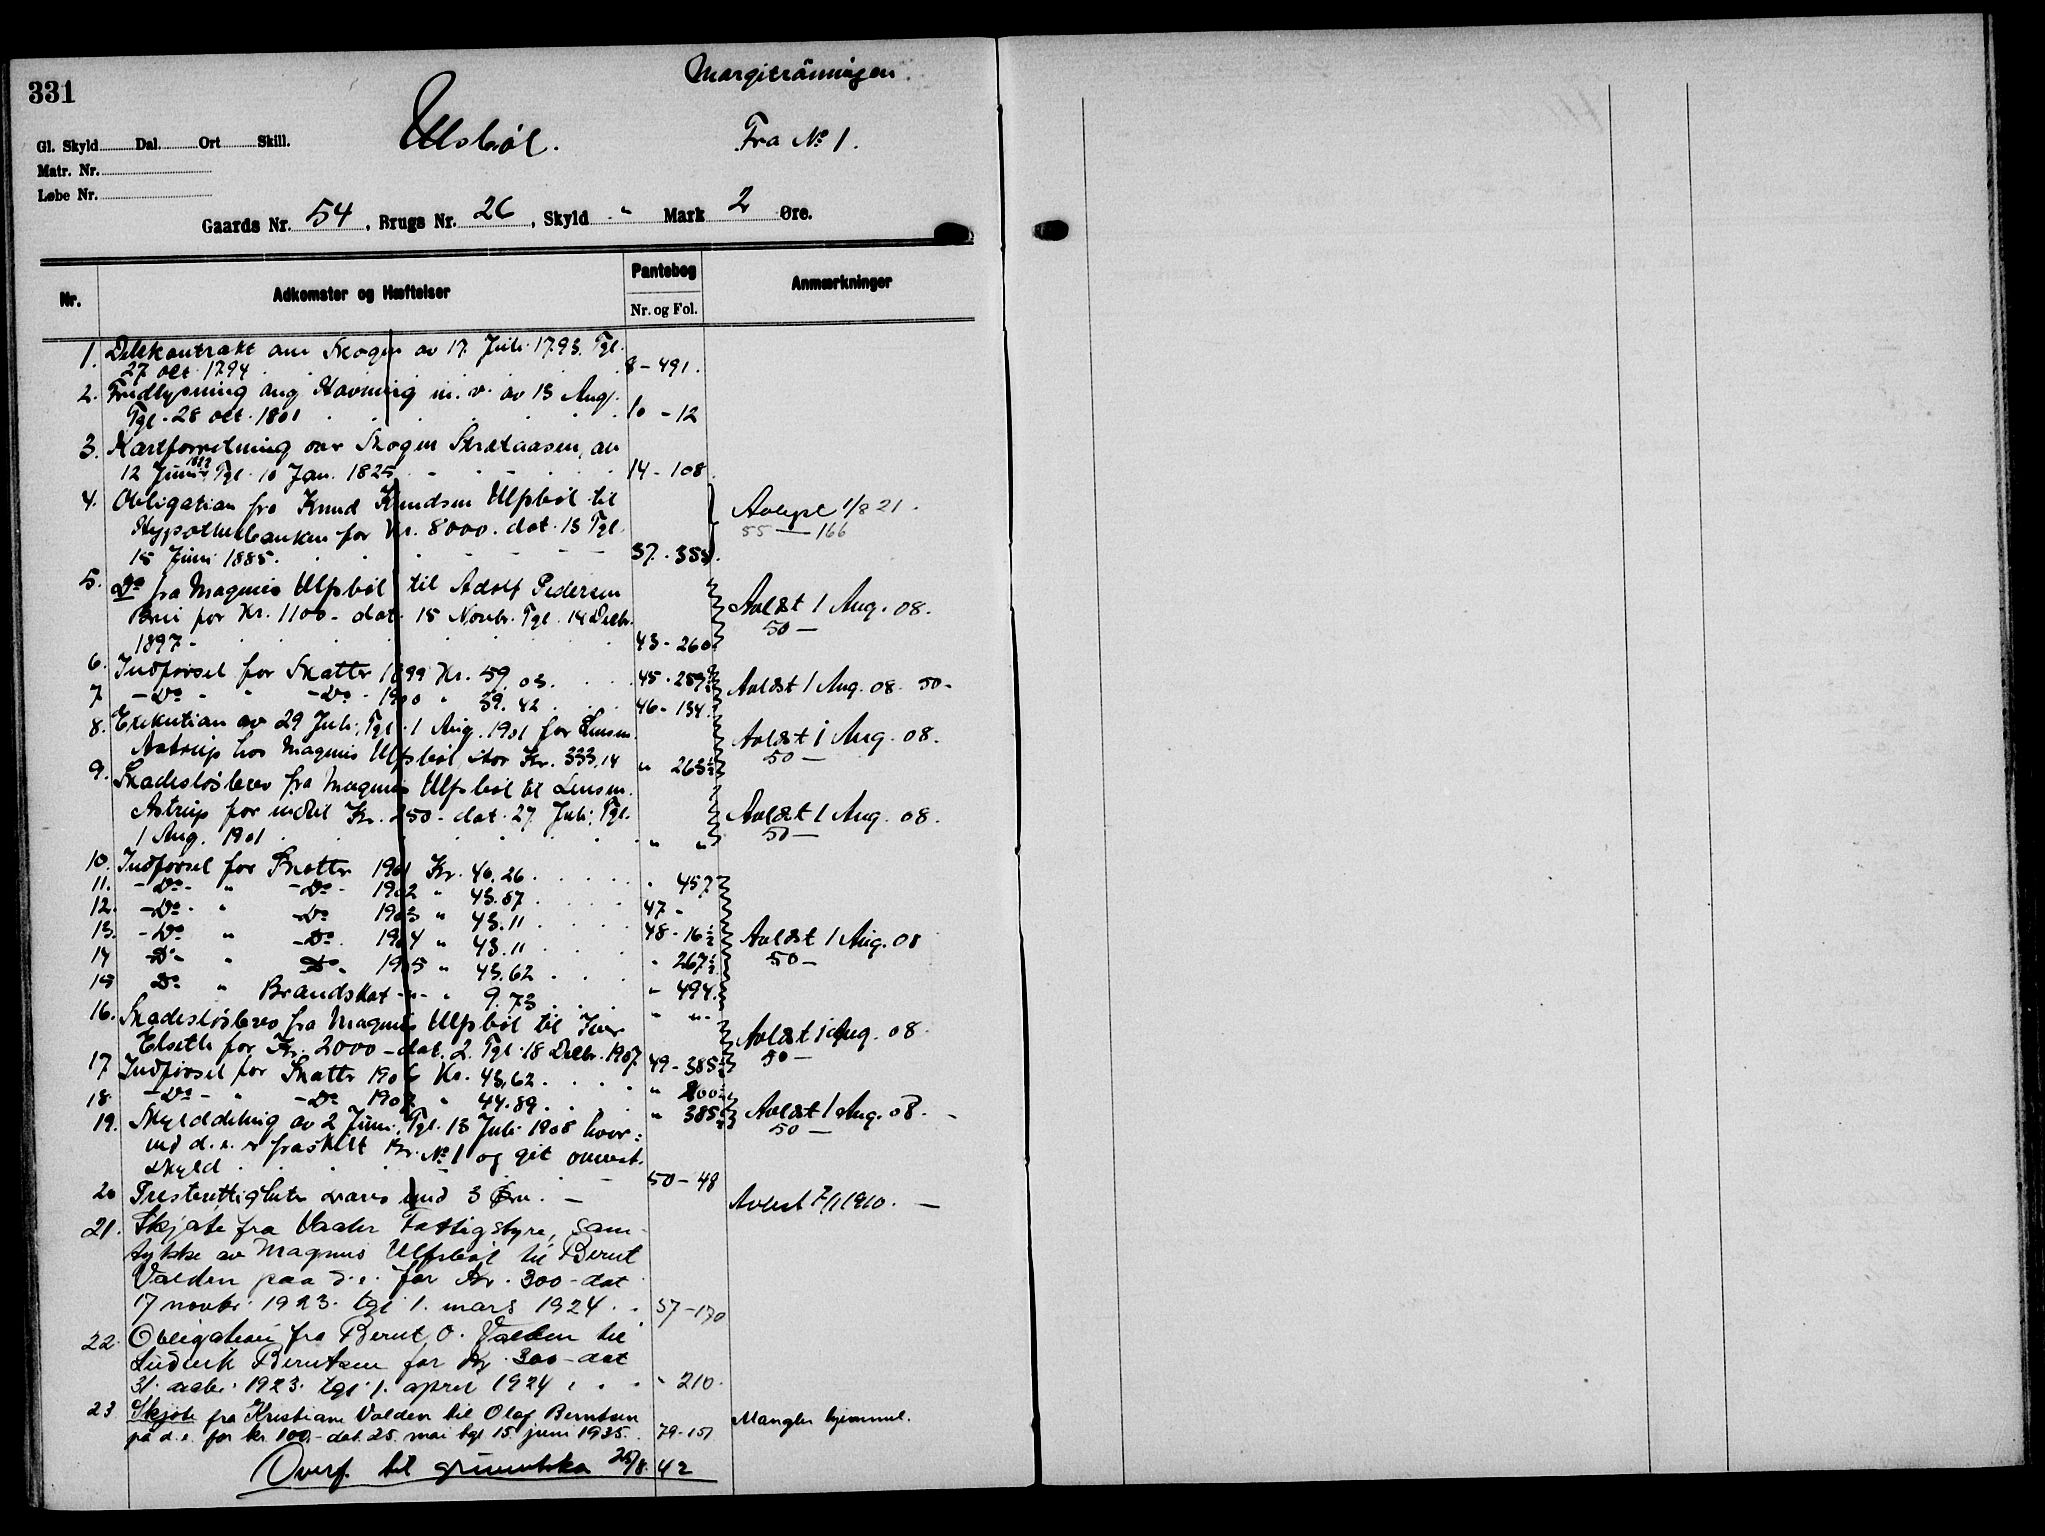 331
Margitrönningen
Ulsbøl.
Fra No 1.
Gl. Skyld Dal. Ort Skill.
Matr. Nr.
Løbe Nr.
Gaards Nr. 54, Brugs Nr. 26, Skyld " Mark 2 Øre.
Nr. Adkomster og Hæftelser Pantebog Anmærkninger
Nr. og Fol.
1. Delekontrakt om Skogen av 17. Juli 1793. Tgl.
27 okt. 1794 8-491.
2. Fredlysning ang Havning m. v. av 13 Aug.
Tgl. 28 okt. 1801 10-12
3. Kartforretning over Skogen Strætaasen, av
12 Juni Tgl. 10 Jan. 1825 14-108
4. Obligation fra Knud Knudsen Ulfsbøl til
Hypothekbanken for Kr. 8000. dat. 13 Tgl. Avlyst 1/8 21.
15 Juni 1885. 37-355. 55 — 166
5. Do fra Magnus Ulfsbøl til Adolf Pedersen
Brui for Kr. 1100 - dat. 15 Novbr. Tgl. 14 Decbr. Avlæst 1 Aug. 08.
1897 - 43-260 50 —
6. Indførsel for Skatter 1899 Kr. 59,03. 45-259½
7 - Do - " - Do - 1900 " 39.42 46-134. Avlæst 1 Aug. 08. 50 -
8. Exekution av 29 Juli, Tgl. 1 Aug. 1901 for Lensm.
Aatrup hos Magnus Ulfsbøl stor Kr. 333,14 " 263½ Avlæst 1 Aug. 08. 50 —
9. Skadesløsbrev fra Magnus Ulfsbøl til Lensm.
Astrup for indtil Kr. 250 - dat. 27 Juli, Tgl. Avlæst 1 Aug. 08.
1 Aug. 1901 " " 50 —
10. Indførsel for Skatter 1901 Kr. 40.26 " 457
11. - Do - " - Do - 1902 " 43.57 47 -
12. - Do - " - Do 1903 " 43.11 48-16½
13. - Do " - Do. 1904 " 43.11 " 267½ Avlæst 1 Aug. 08
14 - Do - " Do. 1905 " 43.62 " 494. 50 -
15 Do " Brandskat - " - " 9.73 " " -
16. Skadesløsbrev fra Magnus Ulfsbøl til Iver
Elseth for Kr. 2000 - dat. 2. Tgl. 18 Decbr. 1907 49-385½ Avlæst 1 Aug. 08. 50 —
17 Indførsel for Skatter 1906 Kr. 43,62.
18. - Do - " - Do 1907 " 44.89. " 385½ Avlæst 1 Aug. 08. 50 —
19. Skylddeling av 2 Juni, Tgl. 13 Juli 1908 hvor=
ved d. e. er fraskilt Br. No 1 og git omenst.
skyld 50-48
20 Presterettigheter svares med 3 Øre. — Avlest 7/1 1910. —
21. Skjøte fra Vaaler Fattigstyre, sam-
tykke av Magnus Ulfsbøl til Bernt
Valden paa d. e. for kr. 300 - dat
17 novbr. 1923. tgl 1. mars 1924. 57-170
22. Obligation fra Bernt O. Valden til
Ludvik Berntsen for kr. 300 - dat
31. decbr. 1923. tgl. 1. april 1924 " 210.
23 Skjøte fra Kristiane Valden til Olaf Berntsen Mangler hjemmel.
på d. e. for kr. 100,- dat. 25. mai tgl 15. juni 1935. 79-151
Overf. til grunnboka 25/8. 42